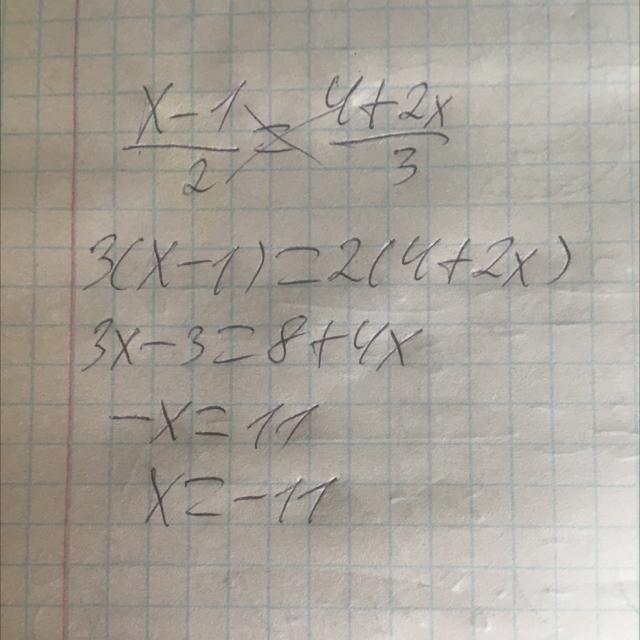 x-1/2 = 4+2x/3
3(x-1)=2(4+2x)
3x-3=8+4x
-x=11
x=-11